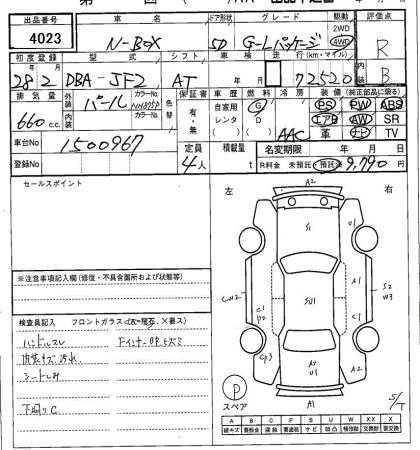 出品番号 車 名 ドア形状 グレード 駆動 評価点
4023 N-BOX 5D G-Lパッケージ 2WD 4WD R
初度登録 型 式 シフト 車 検 走 行(km・マイル) 内装
28年2月 DBA-JF2 AT 年 月 72520 B
排気量 外装 カラーNo. 色替 保証書 車歴 燃料 冷房 装備(純正部品に限る)
660 c.c. パール NH875P 有・無 自家用 G PS PW ABS
内装 カラーNo. レンタ D エアB AW SR
車台No 1500967 定員 積載量 AAC 革 ナビ TV
4人 t 名変期限 年 月 日
登録No R料金 未預託 預託 9,790 円
セールスポイント
左 A2 右
S1 U1
A1
CW2 C1 P2 SU1 S2 W3
※注意事項記入欄(修復・不具合箇所および状態等)
検査員記入 フロントガラス(A・飛石、×要ス)
ハンドルスレ Fインナー部ヒズミ
内装キズ、汚れ
シートしみ
下廻りC
CP3 A2 U1 A2
P
スペア A1 S/T
A B C P S U W XX X
線キズ 要板金 腐蝕 要塗装 サビ 凹凸 補修跡 交換跡 要交換